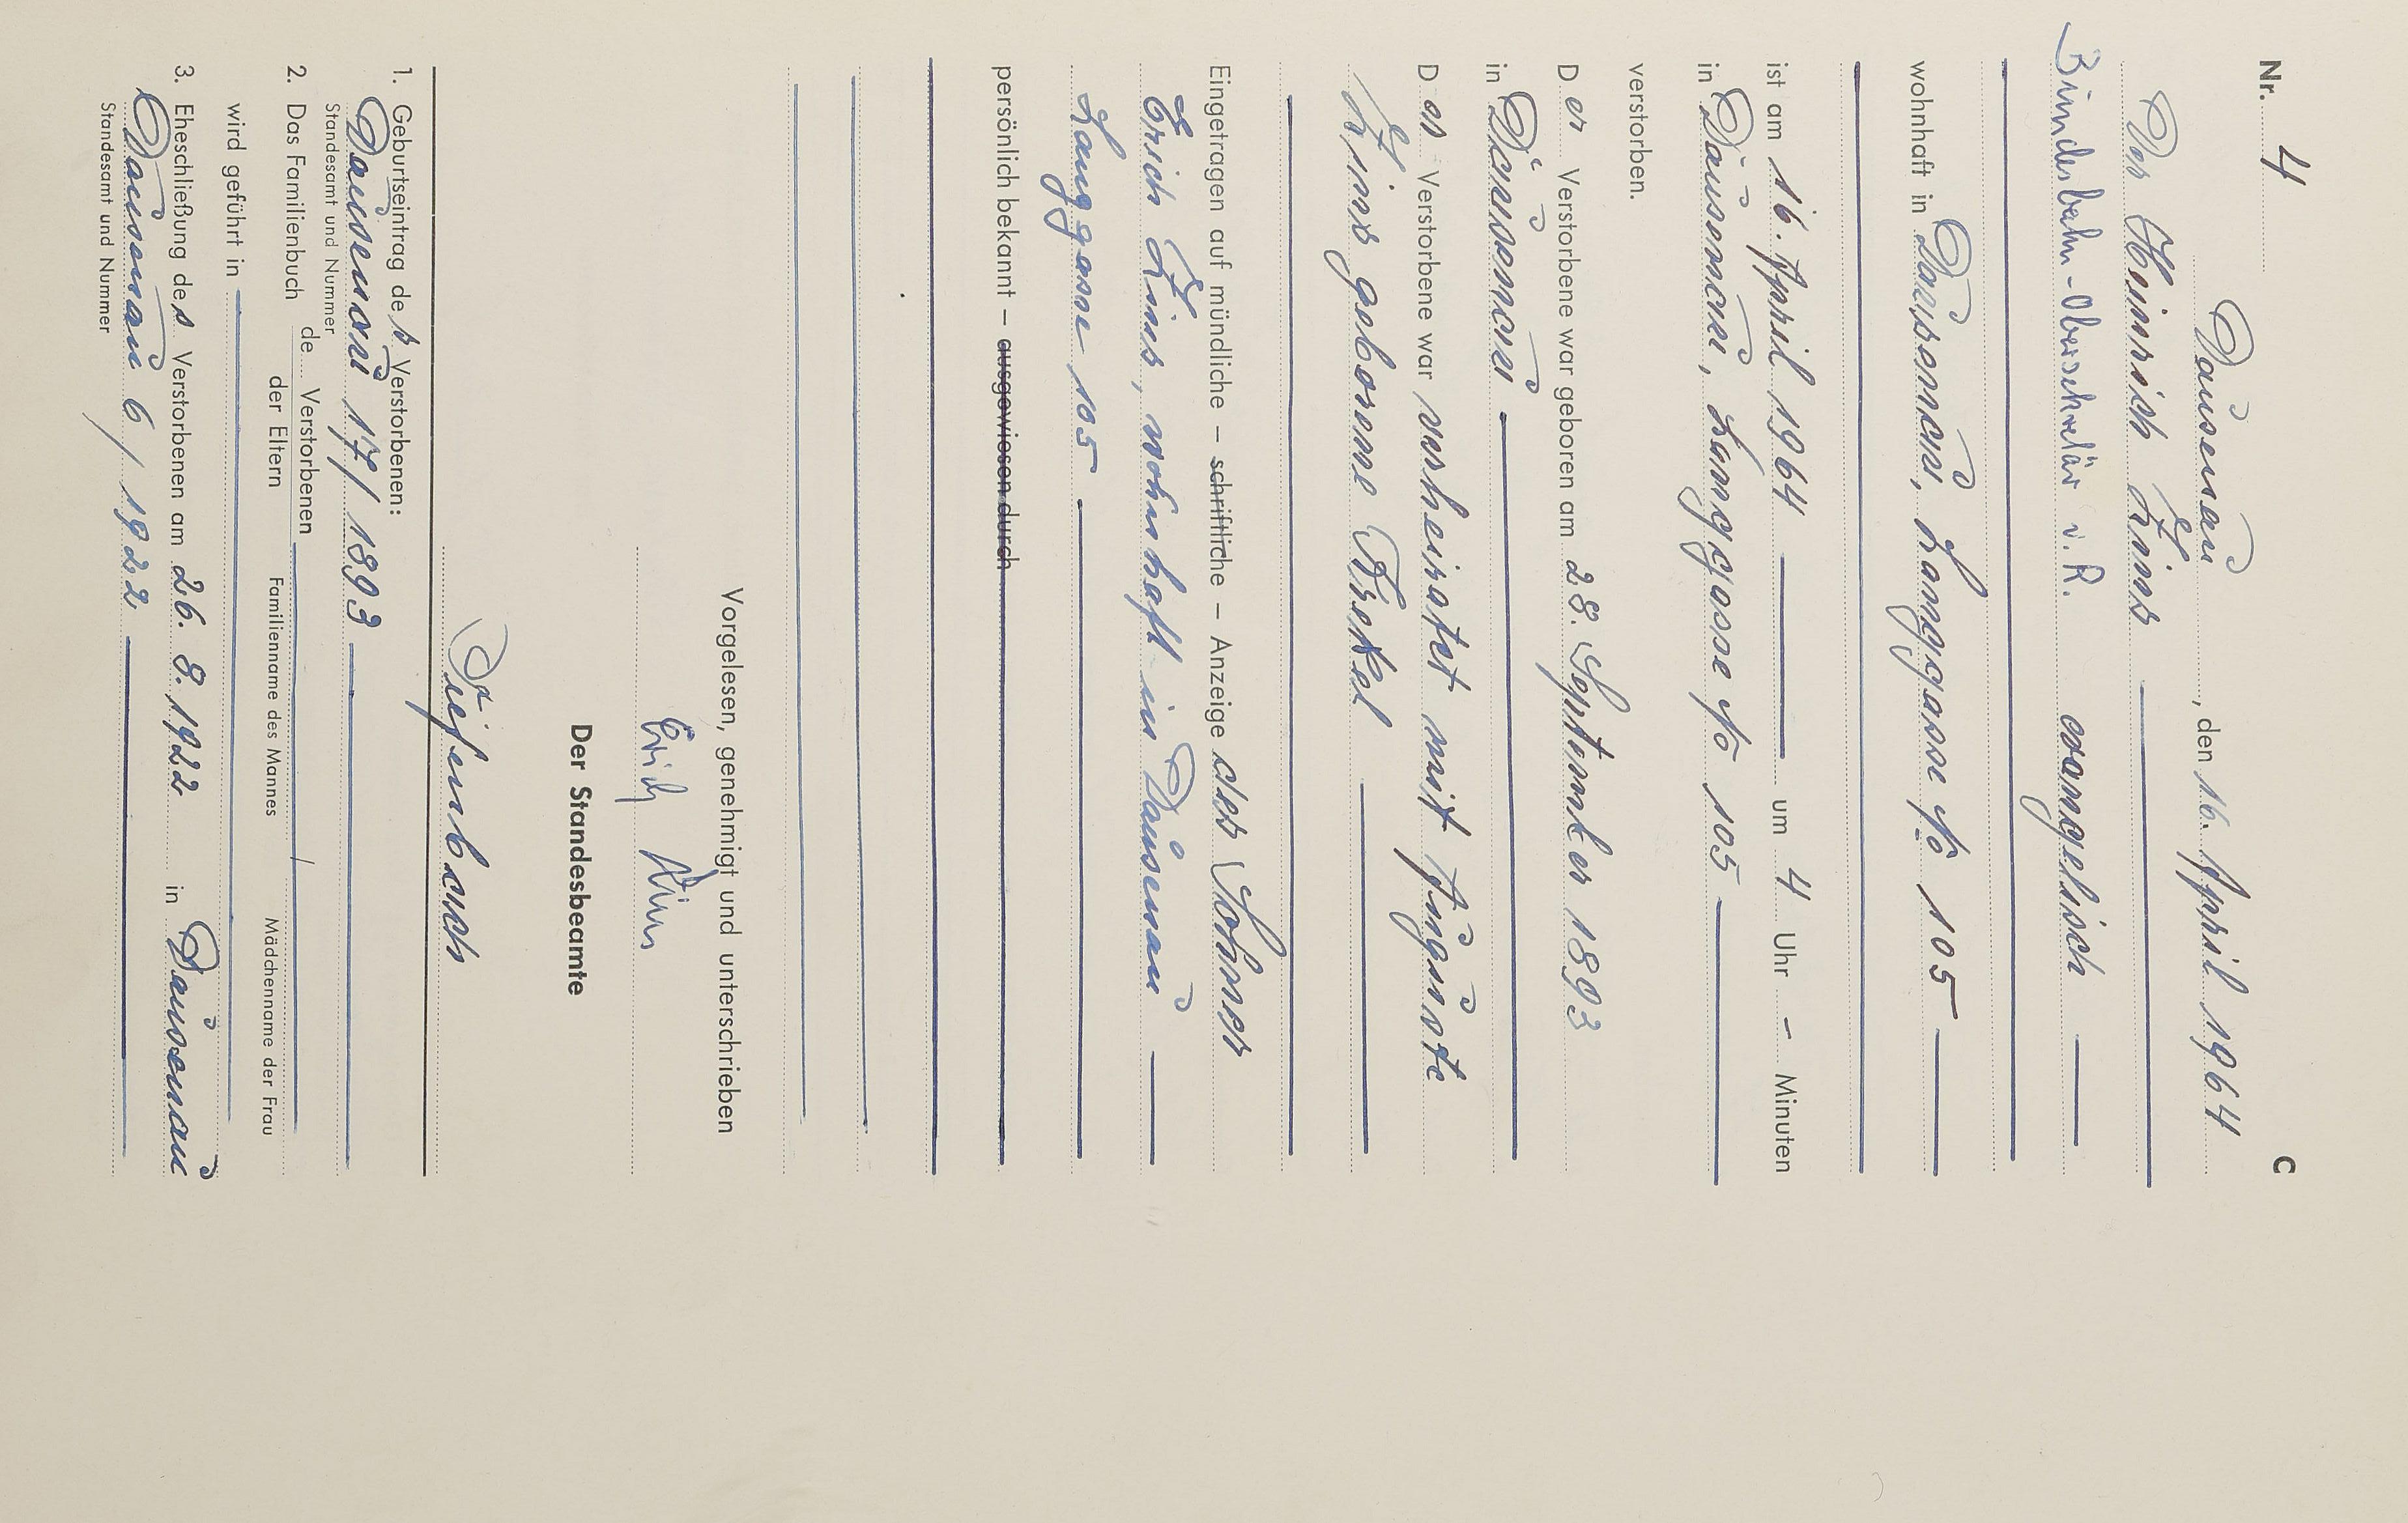 Nr. 4 C
Dausenau, den 16. April 1964
Der Heinrich Linn
Bundesbahn-Obersekretär i. R. evangelisch
wohnhaft in Dausenau, Langgasse No 105
ist am 16. April 1964 um 4 Uhr - Minuten
in Dausenau, Langgasse No 105
verstorben.
Der Verstorbene war geboren am 28. September 1893
in Dausenau
Der Verstorbene war verheiratet mit Auguste
Linn geborene
Eingetragen auf mündliche – schriftliche – Anzeige des Sohnes
Erich Linn, wohnhaft in Dausenau
Langgasse 105
persönlich bekannt – ausgewiesen durch
Vorgelesen, genehmigt und unterschrieben
Erich Linn
Der Standesbeamte
1. Geburtseintrag des Verstorbenen:
Dausenau 17/1893
Standesamt und Nummer
2. Das Familienbuch de Verstorbenen
der Eltern Familienname des Mannes Mädchenname der Frau
wird geführt in
3. Eheschließung des Verstorbenen am 26. 8. 1922 in Dausenau
Dausenau 6/1922
Standesamt und Nummer